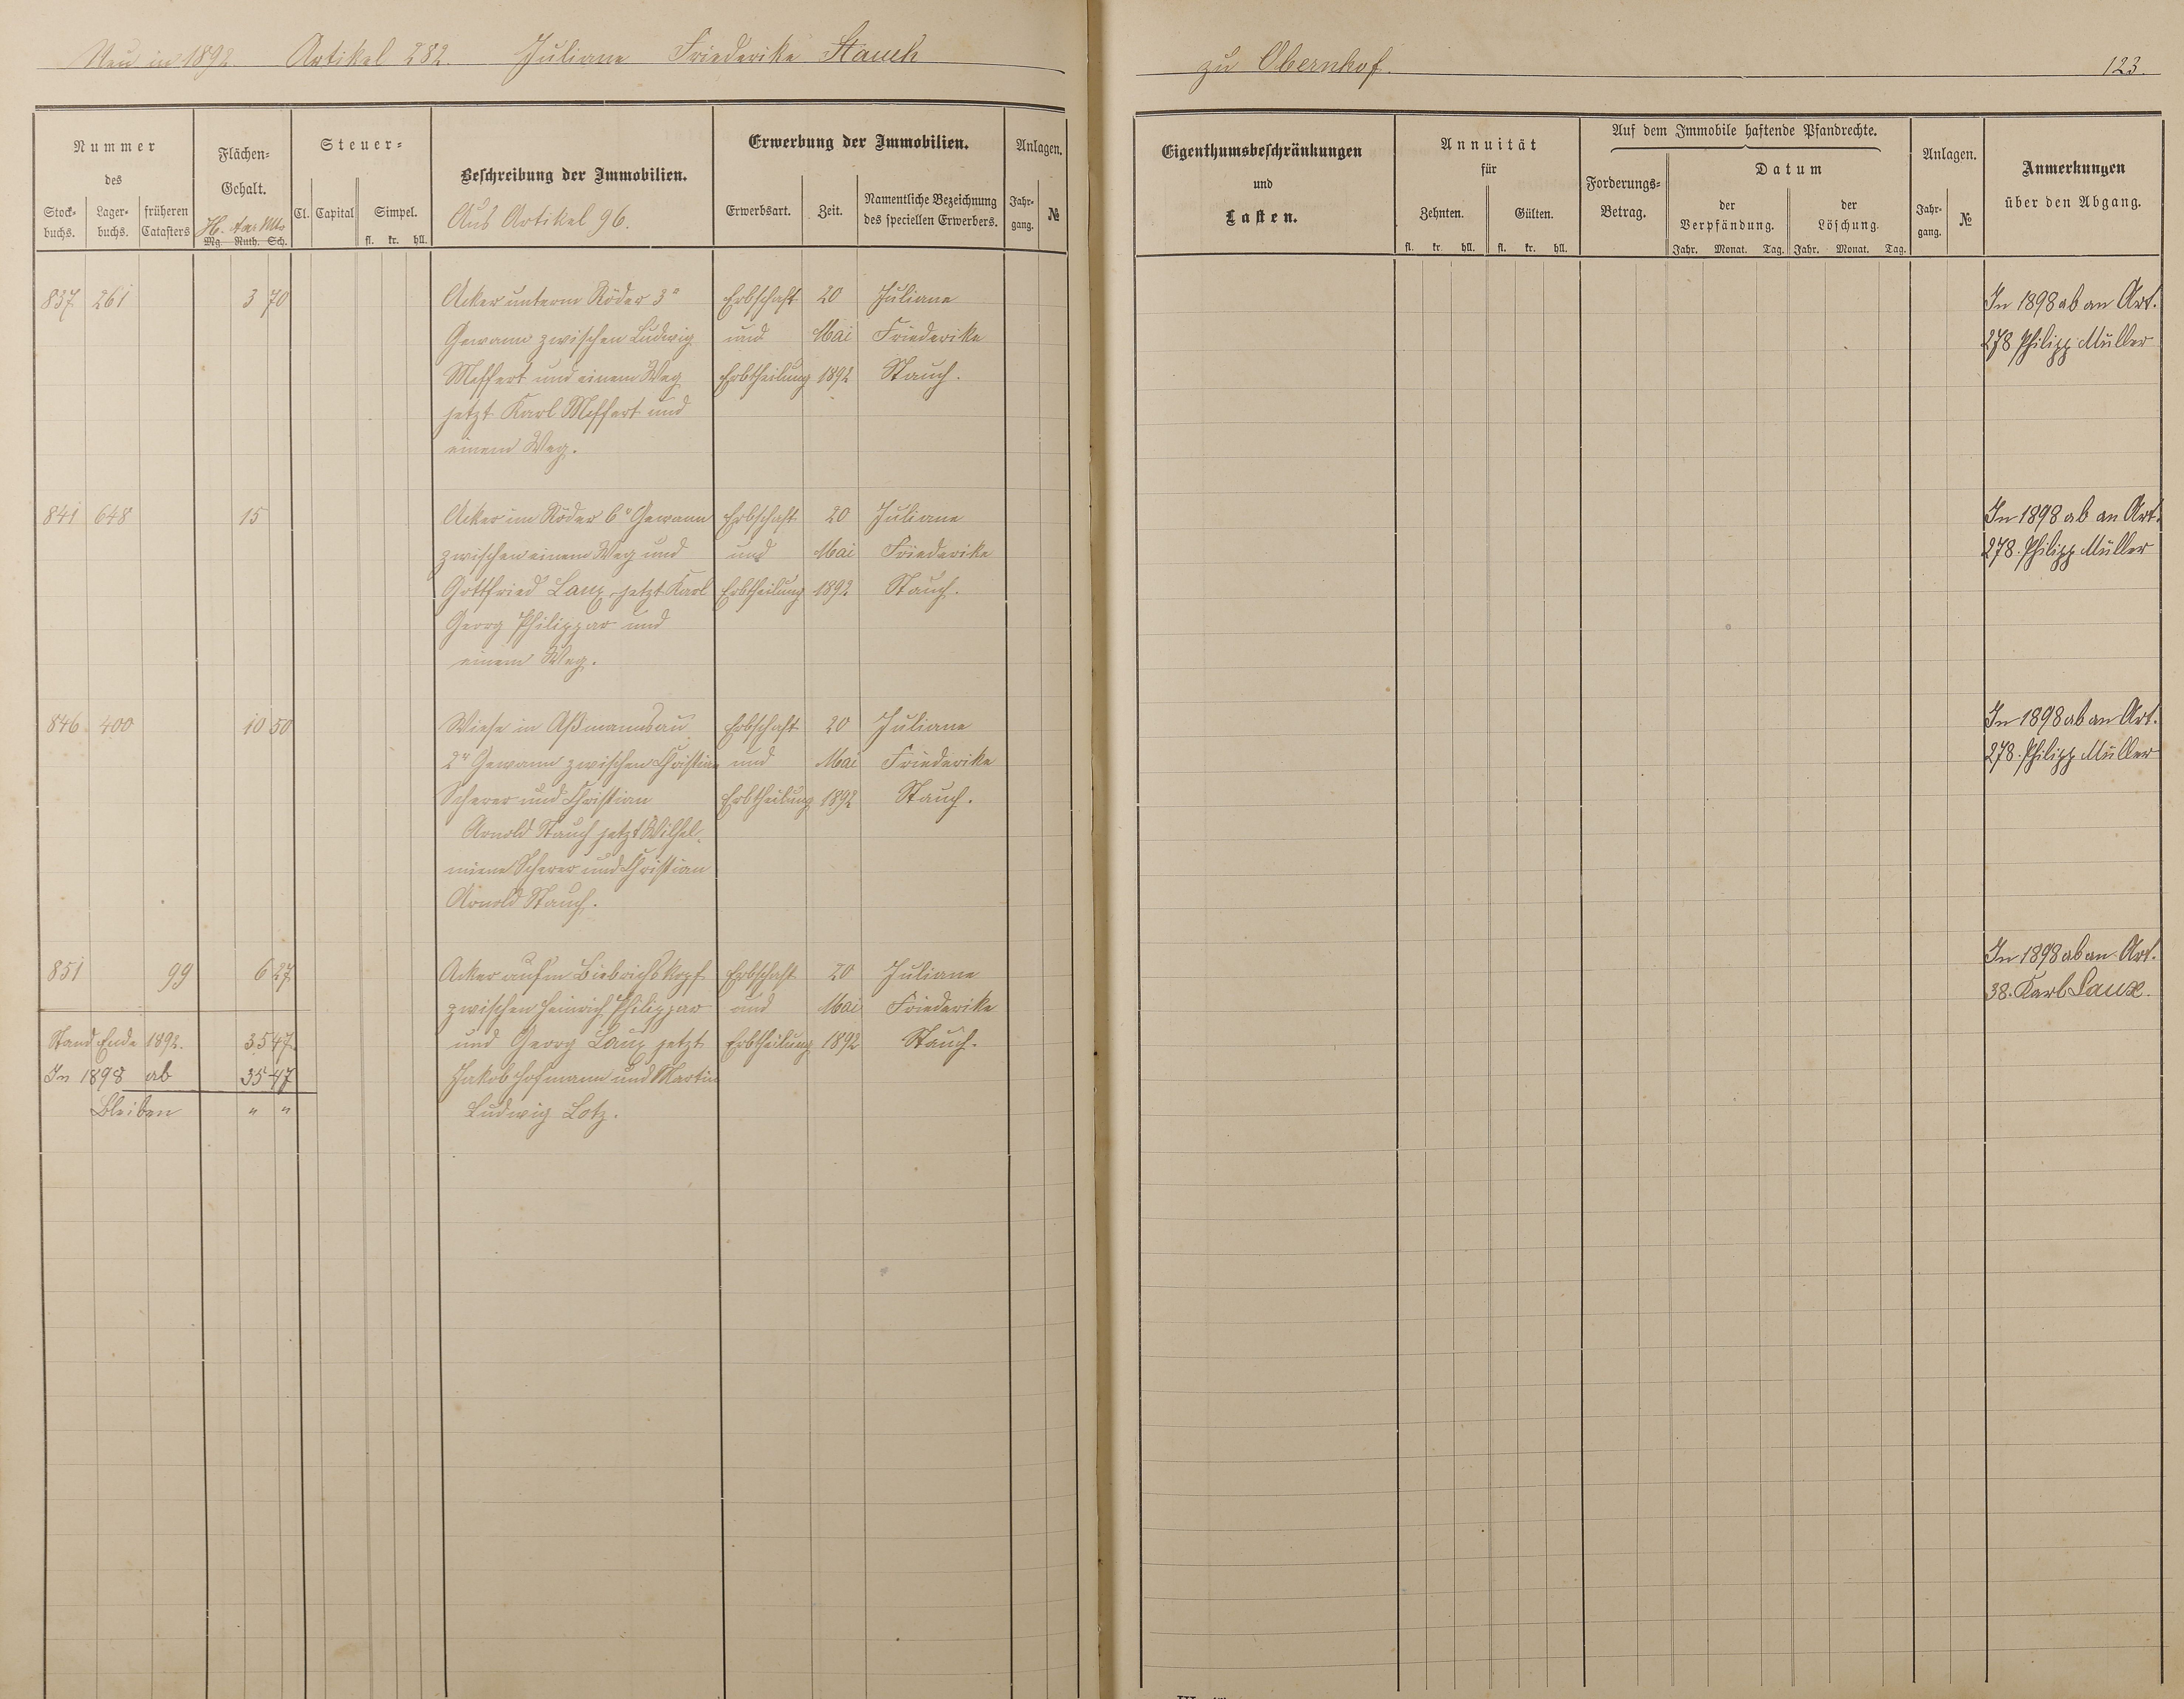 Neu in 1892. Artikel 282. Juliane Friederike Stauch
zu Obernhof. 123.
Nummer
des
Stock-
buchs.
Lager-
buchs.
früheren
Catasters
Flächen-
Gehalt.
H. Aar Mts
Mg. Ruth. Sch.
Steuer-
Cl. Capital Simpel.
fl. kr. hll.
Beschreibung der Immobilien.
Aus Artikel 96.
Erwerbung der Immobilien.
Erwerbsart. Zeit.
Namentliche Bezeichnung
des speciellen Erwerbers.
Anlagen.
Jahr-
gang.
№
Eigenthumsbeschränkungen
und
Lasten.
Annuität
für
Zehnten. Gülten.
fl. kr. hll. fl. kr. hll.
Auf dem Immobile haftende Pfandrechte.
Forderungs-
Betrag.
Datum
der
Verpfändung.
der
Löschung.
Jahr. Monat. Tag. Jahr. Monat. Tag.
Anlagen.
Jahr-
gang.
№
Anmerkungen
über den Abgang.
837 261 3 70 Acker unterm Röder 3r Erbschaft 20 Juliane In 1898 ab an Art.
Gewann zwischen Ludwig und Mai Friederike 278 Philipp Müller
Meffert und einem Weg Erbtheilung 1892 Stauch.
jetzt Karl Meffert und
einem Weg.
841 648 15 Acker im Röder 6r Gewann Erbschaft 20 Juliane In 1898 ab an Art.
zwischen einem Weg und und Mai Friederike 278. Philipp Müller
Gottfried Laux jetzt Karl Erbtheilung 1892 Stauch.
Georg Philippar und
einem Weg.
846. 400 10 50 Wiese in Aßmannsau Erbschaft 20 Juliane In 1898 ab an Art.
2r Gewann zwischen Christian und Mai Friederike 278. Philipp Müller
Scherer und Christian Erbtheilung 1892 Stauch.
Arnold Stauch jetzt Wilhel-
mine Scherer und Christian
Arnold Stauch.
851 99 6 27 Acker aufm Biebrichskopf Erbschaft 20 Juliane In 1898 ab an Art.
zwischen Heinrich Philippar und Mai Friederike 38. Karl Laux.
Stand Ende 1892. 35 47 und Georg Laux jetzt Erbtheilung 1892 Stauch.
In 1898 ab 35 47 Jakob Hofmann und Martin
Bleiben " " Ludwig Lotz.